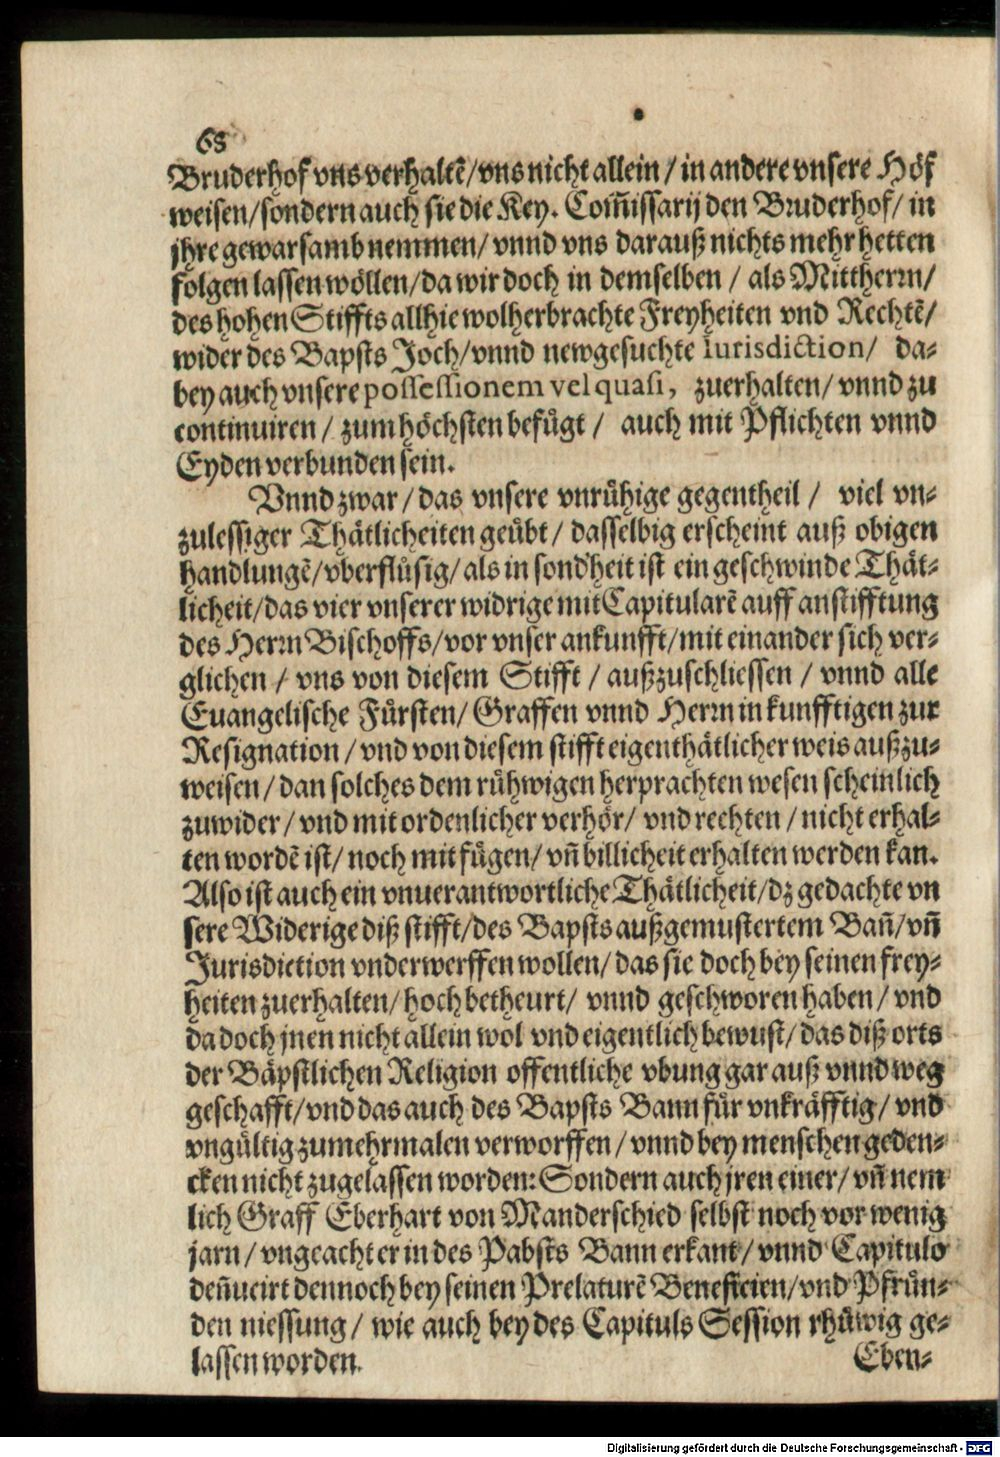 68
Bruderhof vns verhaltē/vns nicht allein / in andere vnsere Höf
weisen/sondern auch sie die Key. Com̃issarij den Bruderhof/ in
jhre gewarsamb nemmen/ vnnd vns darauß nichts mehr hetten
folgen lassen wöllen/da wir doch in demselben / als Mittherrn/
des hohen Stiffts allhie wolherbrachte Freyheiten vnd Rechtē/
wider des Bapsts Joch/vnnd newgesuchte Iurisdiction/ da-
bey auch vnsere possessionem vel quasi, zuerhalten/ vnnd zu
continuiren / zum höchsten befügt / auch mit Pflichten vnnd
Eyden verbunden sein.
Vnnd zwar / das vnsere vnrühige gegentheil / viel vn-
zulessiger Thätlicheiten geübt / dasselbig erscheint auß obigen
handlungē/vberflüsig/ als in sond'heit ist ein geschwinde Thät-
licheit/das vier vnserer widrige mitCapitularē auff anstifftung
des Herrn Bischoffs/vor vnser ankunfft/mit einander sich ver-
glichen / vns von diesem Stifft / außzuschliessen / vnnd alle
Euangelische Fürsten/ Graffen vnnd Herrn in kunfftigen zur
Resignation / vnd von diesem stifft eigenthätlicher weis außzu-
weisen / dan solches dem rühwigen herprachten wesen scheinlich
zuwider / vnd mit ordenlicher verhör/ vnd rechten / nicht erhal-
ten wordē ist/ noch mit fügen/ vñ billicheit erhalten werden kan.
Also ist auch ein vnuerantwortliche Thätlicheit/dz gedachte vn
sere Widerige diß stifft/des Bapsts außgemustertem Bañ/vñ
Jurisdiction vnderwerffen wollen/ das sie doch bey seinen frey-
heiten zuerhalten/ hoch betheurt/ vnnd geschworen haben / vnd
da doch jnen nicht allein wol vnd eigentlich bewust/ das diß orts
der Bäpstlichen Religion offentliche vbung gar auß vnnd weg
geschafft/vnd das auch des Bapsts Bann für vnkräfftig/ vnd
vngültig zumehrmalen verworffen / vnnd bey menschen geden-
cken nicht zugelassen worden: Sondern auch jren einer/ vñ nem
lich Graff Eberhart von Manderschied selbst noch vor wenig
jarn / vngeacht er in des Pabsts Bann erkant/ vnnd Capitulo
deñucirt dennoch bey seinen Prelaturē Beneficien/vnd Pfrün-
den niessung / wie auch bey des Capituls Session rhüwig ge-
lassen worden.
Eben-
Digitalisierung gefördert durch die Deutsche Forschungsgemeinschaft - DFG